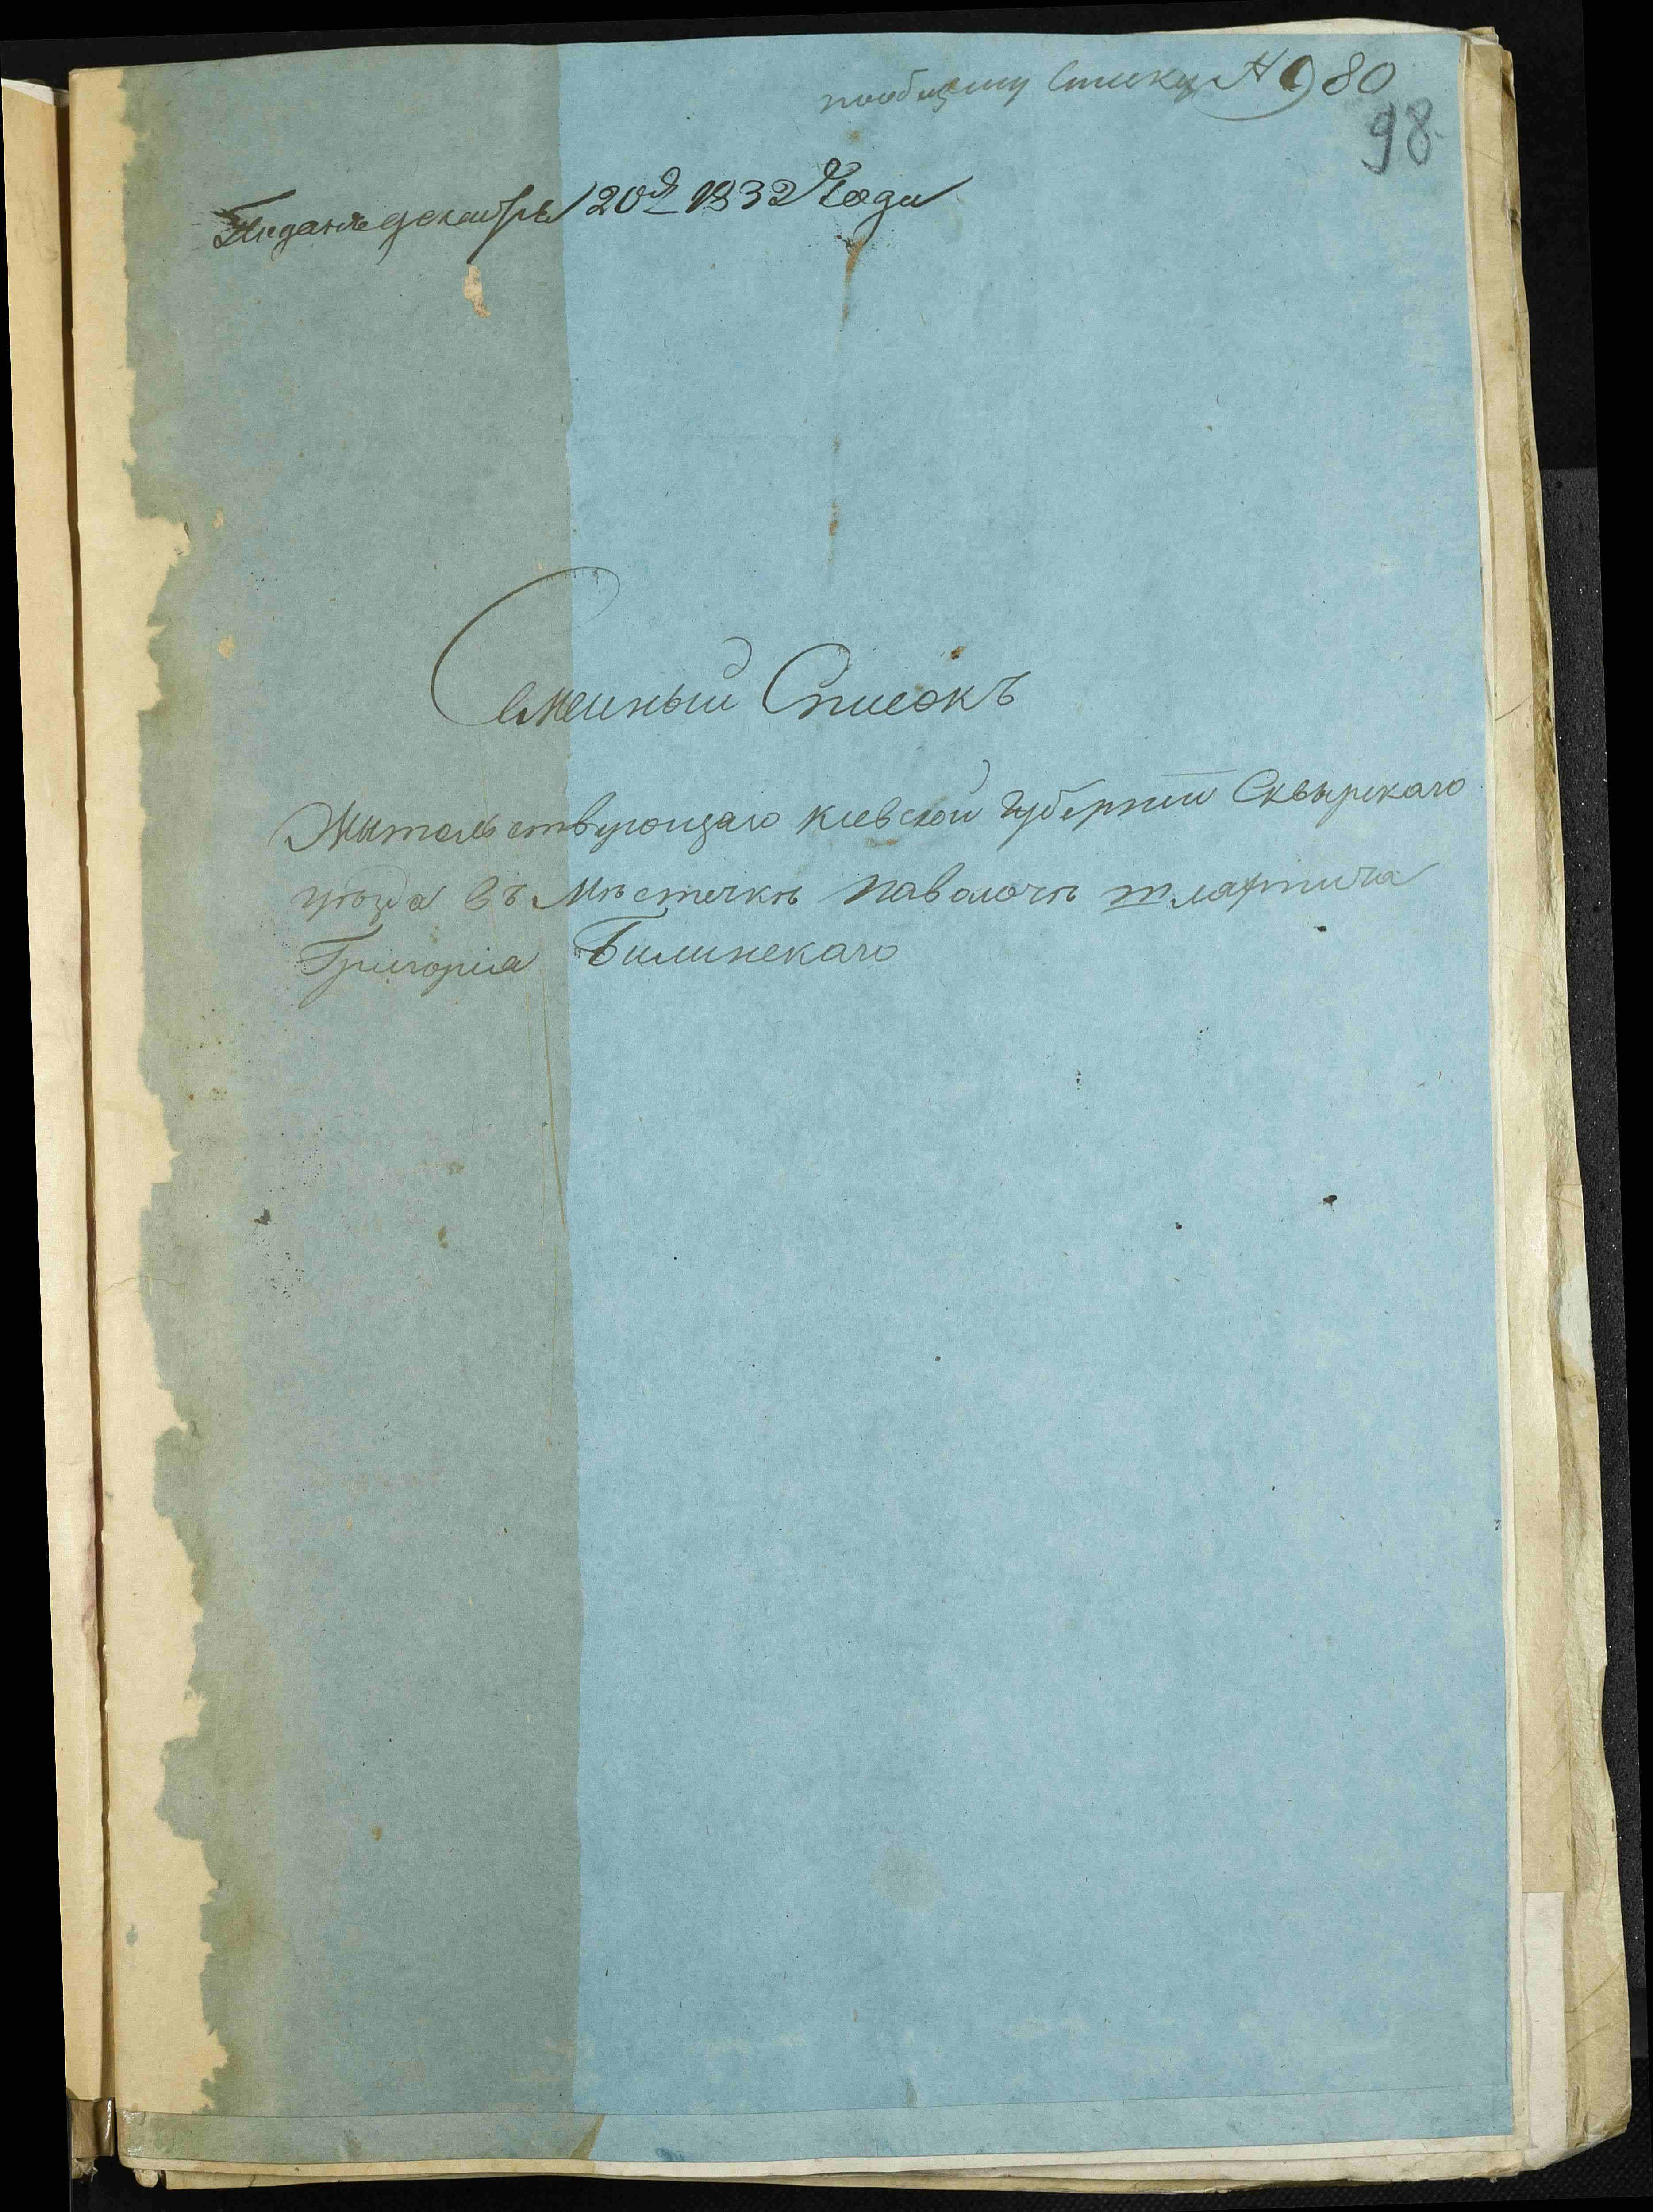 пообщему списку № 980
98
Подано декабря 20го 1832 Года
Семейный Списокъ
Жытельствующаго кіевской Губерніи Сквырскаго
уѣзда въ Мѣстечкѣ паволочѣ шляхтича
Григоріа Билинскаго